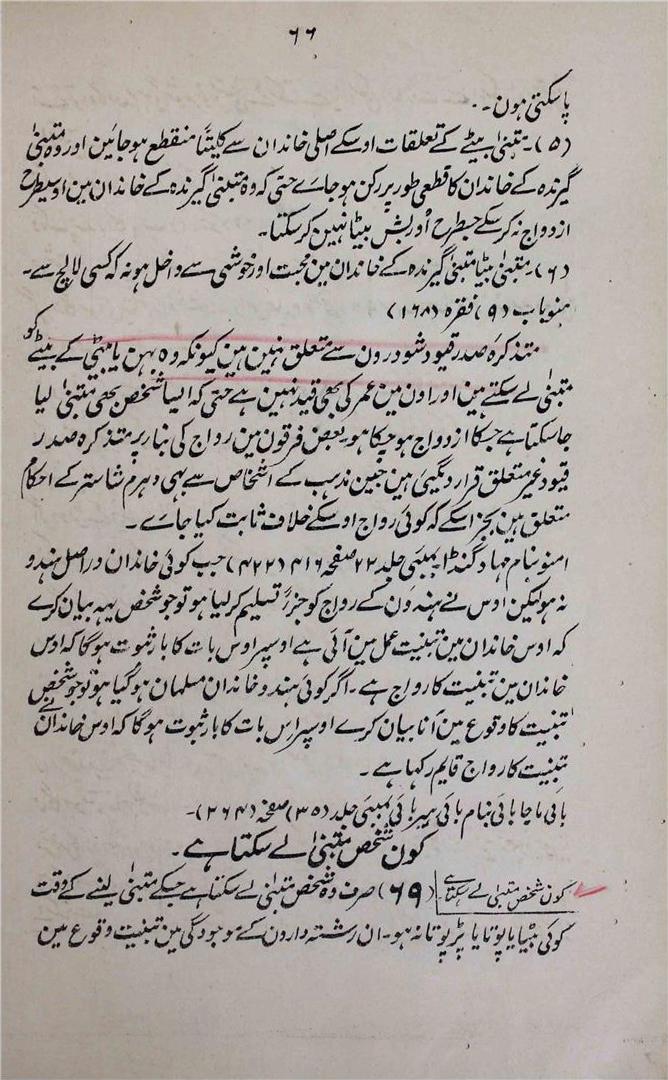 ۶۶
پا سکتی ہون۔۔
(۵)۔ متبنیٰ بیٹے کے تعلقات اوسکے اصلی خاندان سے کلیتاً منقطع ہو جائین اور وہ متبنیٰ
گیرندہ کے خاندان کا قطعی طور پر رکن ہو جاے حتی کہ وہ متبنیٰ گیرندہ کے خاندان مین اوسیطرح
ازدواج نہ کر سکے جسطرح اَورلبش بیٹا نہین کر سکتا۔
(۶)۔ متبنیٰ بیٹا متبنیٰ گیرندہ کے خاندان مین محبت اور خوشی سے داخل ہو نہ کہ کسی لالچ سے۔
منو باب (۹) فقرہ (۱۶۸)
متذکرہ صدر قیود شودرون سے متعلق نہین ہین کیونکہ وہ بہن یا بیٹی کے بیٹے کو
متبنیٰ لے سکتے ہین اور اون مین عمر کی بھی قید نہین ہے حتی کہ ایسا شخص بھی متبنیٰ لیا
جا سکتا ہے جسکا ازدواج ہو چکا ہو۔ بعض فرقون مین رواج کی بنا پر متذکرہ صدر
قیود غیر متعلق قرار دیگیئ ہین جین مذہب کے اشخاص سے بہی دہرم شاستر کے احکام
متعلق ہین بجز اسکے کہ کوئی رواج اوسکے خلاف ثابت کیا جاے۔
امنو بنام مہادگنڈا بمبئی جلد ۲۲ صفحہ ۴۱۶ (۴۲۲) جب کوئی خاندان در اصل ہندو
نہ ہو لیکن اوس نے ہندون کے رواج کو جزءً تسلیم کر لیا ہو تو جو شخص یہہ بیان کرے
کہ اوس خاندان مین تبنیت عمل مین آئی ہے اوسپر اوس بات کا بار ثبوت ہوگا کہ اوس
خاندان مین تبنیت کا رواج ہے۔ اگر کوئی ہندو خاندان مسلمان ہو گیا ہو تو جو شخص
تبنیت کا وقوع مین آنا بیان کرے اوسپر اس بات کا بار ثبوت ہوگا کہ اوس خاندان نے
تبنیت کا رواج قایم رکہا ہے۔
بائی ماچا بائی بنام بائی ہیر بائی بمبئی جلد (۳۵) صفحہ (۲۶۴)۔
کون شخص متبنیٰ لے سکتا ہے۔
کون شخص متبنیٰ لے سکتا ہے (۶۹) صرف وہ شخص متبنیٰ لے سکتا ہے جسکے متبنیٰ لینے کے وقت
کوئی بیٹا یا پوتا یا پڑپوتا نہ ہو۔ ان رشتہ دارون کے موجودگی مین تبنیت وقوع مین